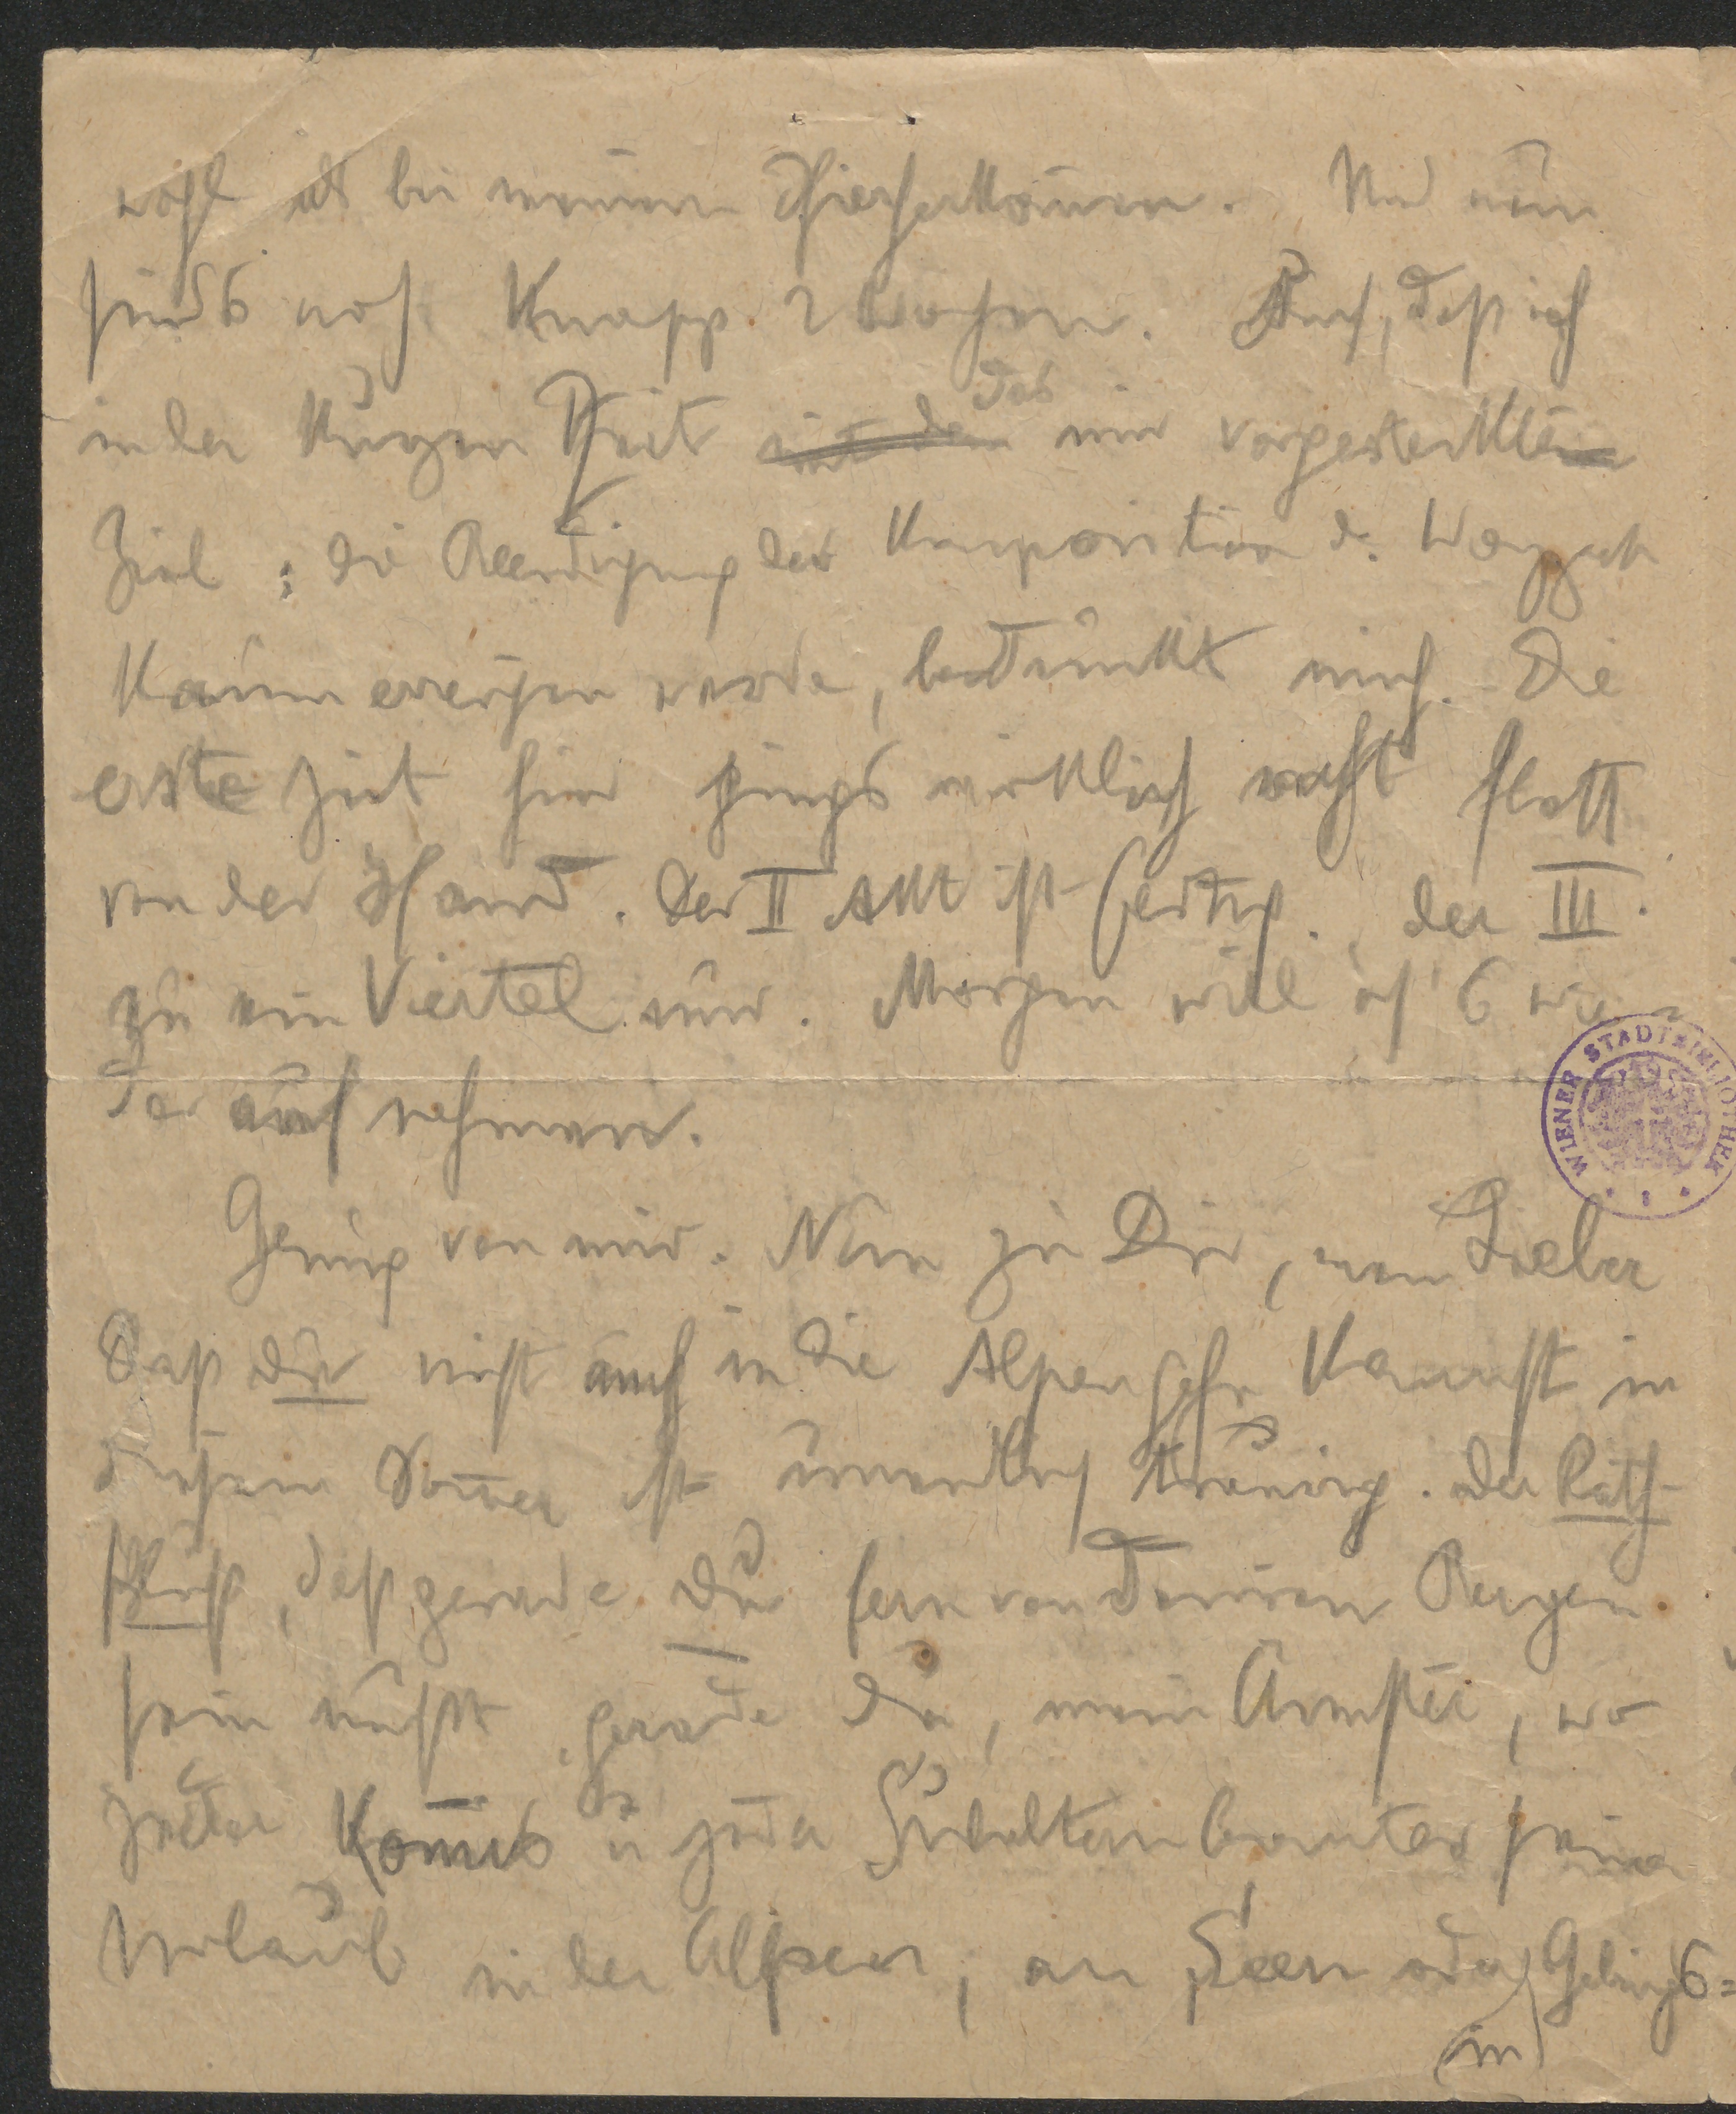 wohl als bei meinem Hierherkommen. Und nun
sind's noch knapp 2 Wochen. Auch, daß ich
in der kurzen Zeit mit dem das mir vorgesteckte
Ziel: die Beendigung der Komposition d. Wozzeck
kaum erreichen werde, bedrückt mich. Die
erste Zeit hier ging's wirklich recht flott
von der Hand. Der II Akt ist fertig. der III.
zu ein Viertel nur. Morgen will ich's wie
der aufnehmen.
Genug von mir. Nun zu Dir, mein Lieber
Daß Du nicht auch in die Alpen gehn kannst in
diesem Som̅er ist unendlich traurig. Der Rath-
schluß, daß gerade Du fern von Deinen Bergen
sein mußt, gerade Du, mein Ärmster, wo
jeder Kom̅is u jeder Subalternbeamter seinen
Urlaub in den Alpen, an Seen oder Gebirgs=
in
WIENER STADTBIBLIOTHEK